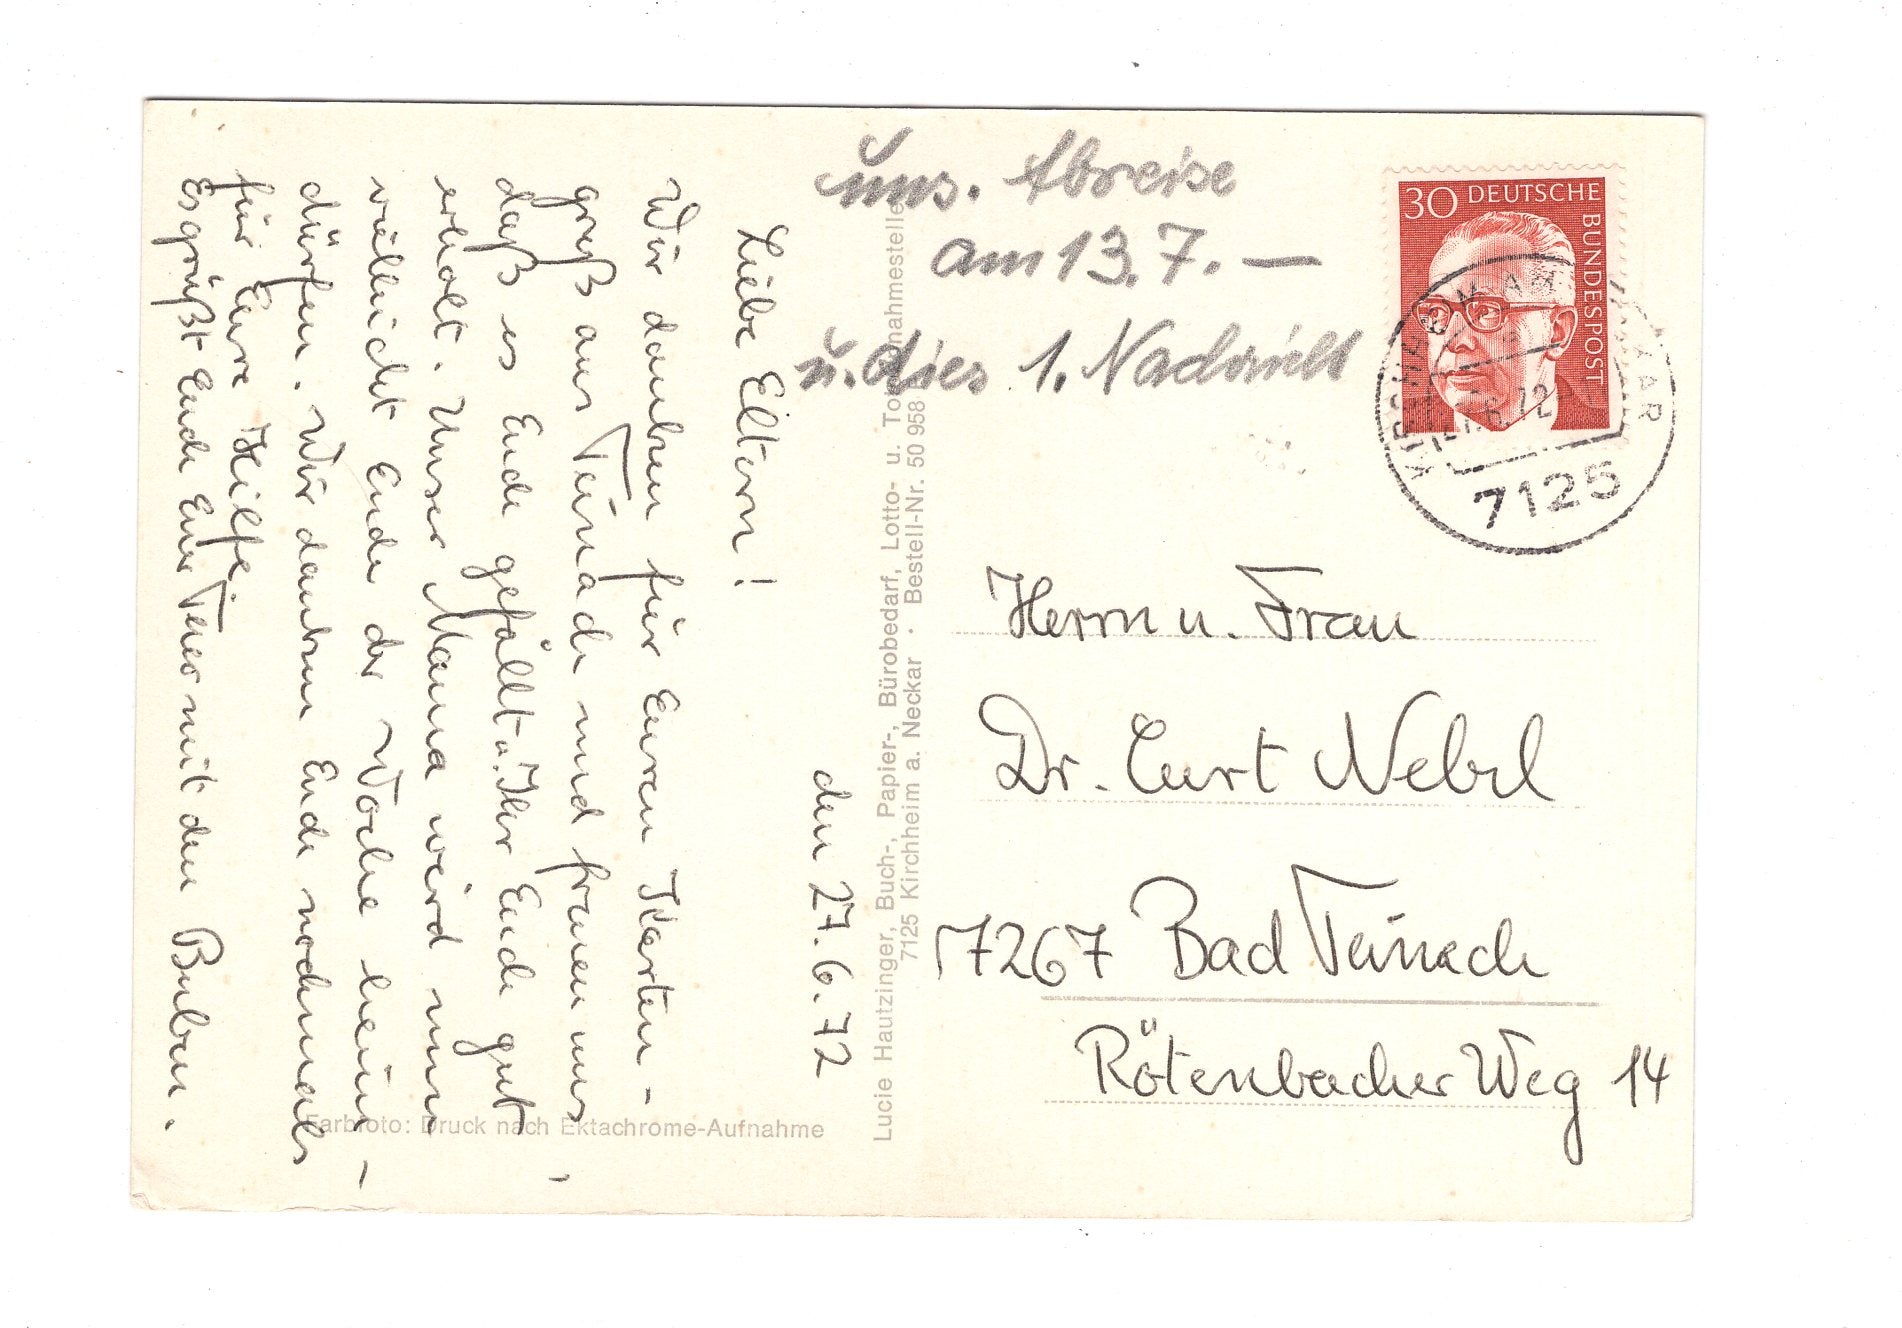 uns. Abreise
am 13. 7. —
u. dies 1. Nachricht
30 DEUTSCHE BUNDESPOST
7125
den 27. 6. 72
Liebe Eltern!
Wir danken für Euren Karten-
gruß aus Teinach und freuen uns,
daß es Euch gefällt u. Ihr Euch gut
erholt. Unser Mama wird nun
vielleicht Ende der Woche heim-
dürfen. Wir danken Euch nochmals
für Eure Hilfe.
Es grüßt Euch Eure mit den Buben.
Lucie Hautzinger, Buch-, Papier-, Bürobedarf, Lotto- u. Totoannahmestelle
7125 Kirchheim a. Neckar · Bestell-Nr. 50 958
Farbfoto: Druck nach Ektachrome-Aufnahme
Herrn u. Frau
Dr. Curt Nebel
7267 Bad Teinach
Rötenbacher Weg 14